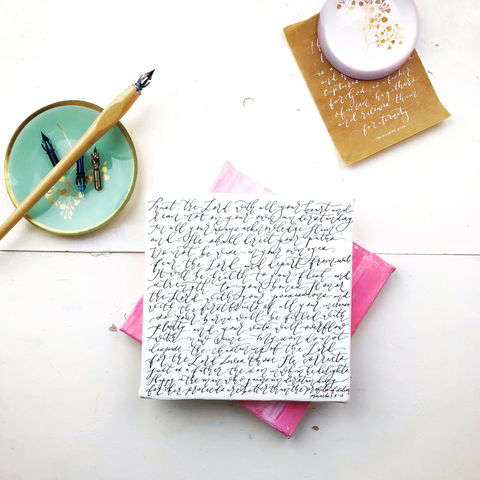 Trust the Lord with all your heart and
lean not on your own understanding
In all your ways acknowledge Him
and He shall direct your paths
Do not be wise in your own eyes
fear the Lord and depart from evil
It will be health to your flesh and
strength to your bones Honor
the Lord with your possessions and
with the firstfruits of all your increase
so your barns will be filled with
plenty and your vats will overflow
with new wine My son do not
despise the chastening of the Lord
for the Lord loves He corrects
just as a father the son in whom he delights
Happy is the man who gains understanding
for her proceeds are better than the profits of silver
for God is
and received them
for eternity